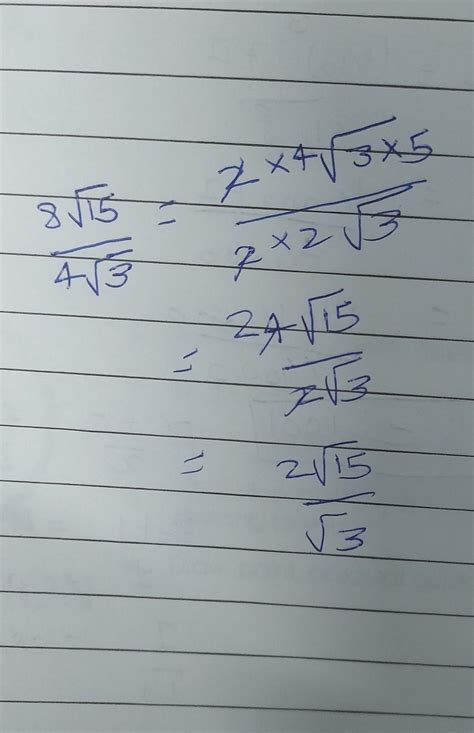 8√15 / 4√3 = 2 × 4√3 × 5 / 2 × 2√3
= 2 4√15 / 2√3
= 2√15 / √3